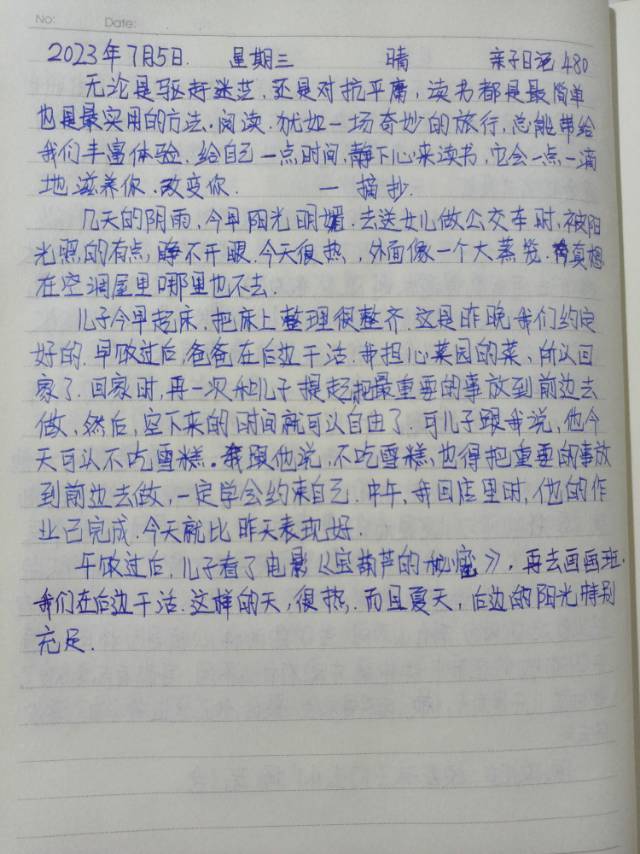 No: Date:
2023年7月5日. 星期三 晴 亲子日记480
无论是驱赶迷茫,还是对抗平庸,读书都是最简单
也是最实用的方法.阅读.犹如一场奇妙的旅行,总能带给
我们丰富体验.给自己一点时间,静下心来读书,它会一点一滴
地滋养你.改变你. — 摘抄.
几天的阴雨,今早阳光明媚.去送女儿做公交车时,被阳
光照的有点,睁不开眼.今天很热,外面像一个大蒸笼.真想
在空调屋里哪里也不去.
儿子今早起床,把床上整理很整齐.这是昨晚我们约定
好的.早饭过后,爸爸在后边干活.我担心菜园的菜,所以回
家了.回家时,再一次和儿子提起把最重要的事放到前边去
做,然后,空下来的时间就可以自由了.可儿子跟我说,他今
天可以不吃雪糕。我跟他说,不吃雪糕,也得把重要的事放
到前边去做,一定学会约束自己.中午,我回店里时,他的作
业已完成.今天就比昨天表现好.
午饭过后,儿子看了电影《宝葫芦的秘密》,再去画画班.
我们在后边干活.这样的天,很热.而且夏天,后边的阳光特别
充足.